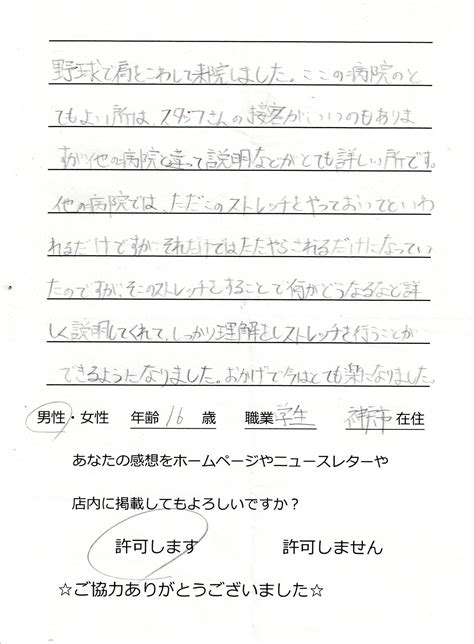 野球で肩をこわして来院しました。ここの病院のと
てもよい所は、スタッフさんの接客がいいのもありま
すが他の病院と違って説明などがとても詳しい所です。
他の病院では、ただこのストレッチをやっておいてといわ
れるだけですが、それだけではただやらされるだけになってい
たのですが、そこのストレッチをすることで何がどうなるなど詳
しく説明してくれて、しっかり理解をしストレッチを行うことが
できるようになりました。おかげで今はとても楽になりました。
男性・女性 年齢 16 歳 職業 学生 神戸市 在住
あなたの感想をホームページやニュースレターや
店内に掲載してもよろしいですか？
許可します 許可しません
☆ご協力ありがとうございました☆